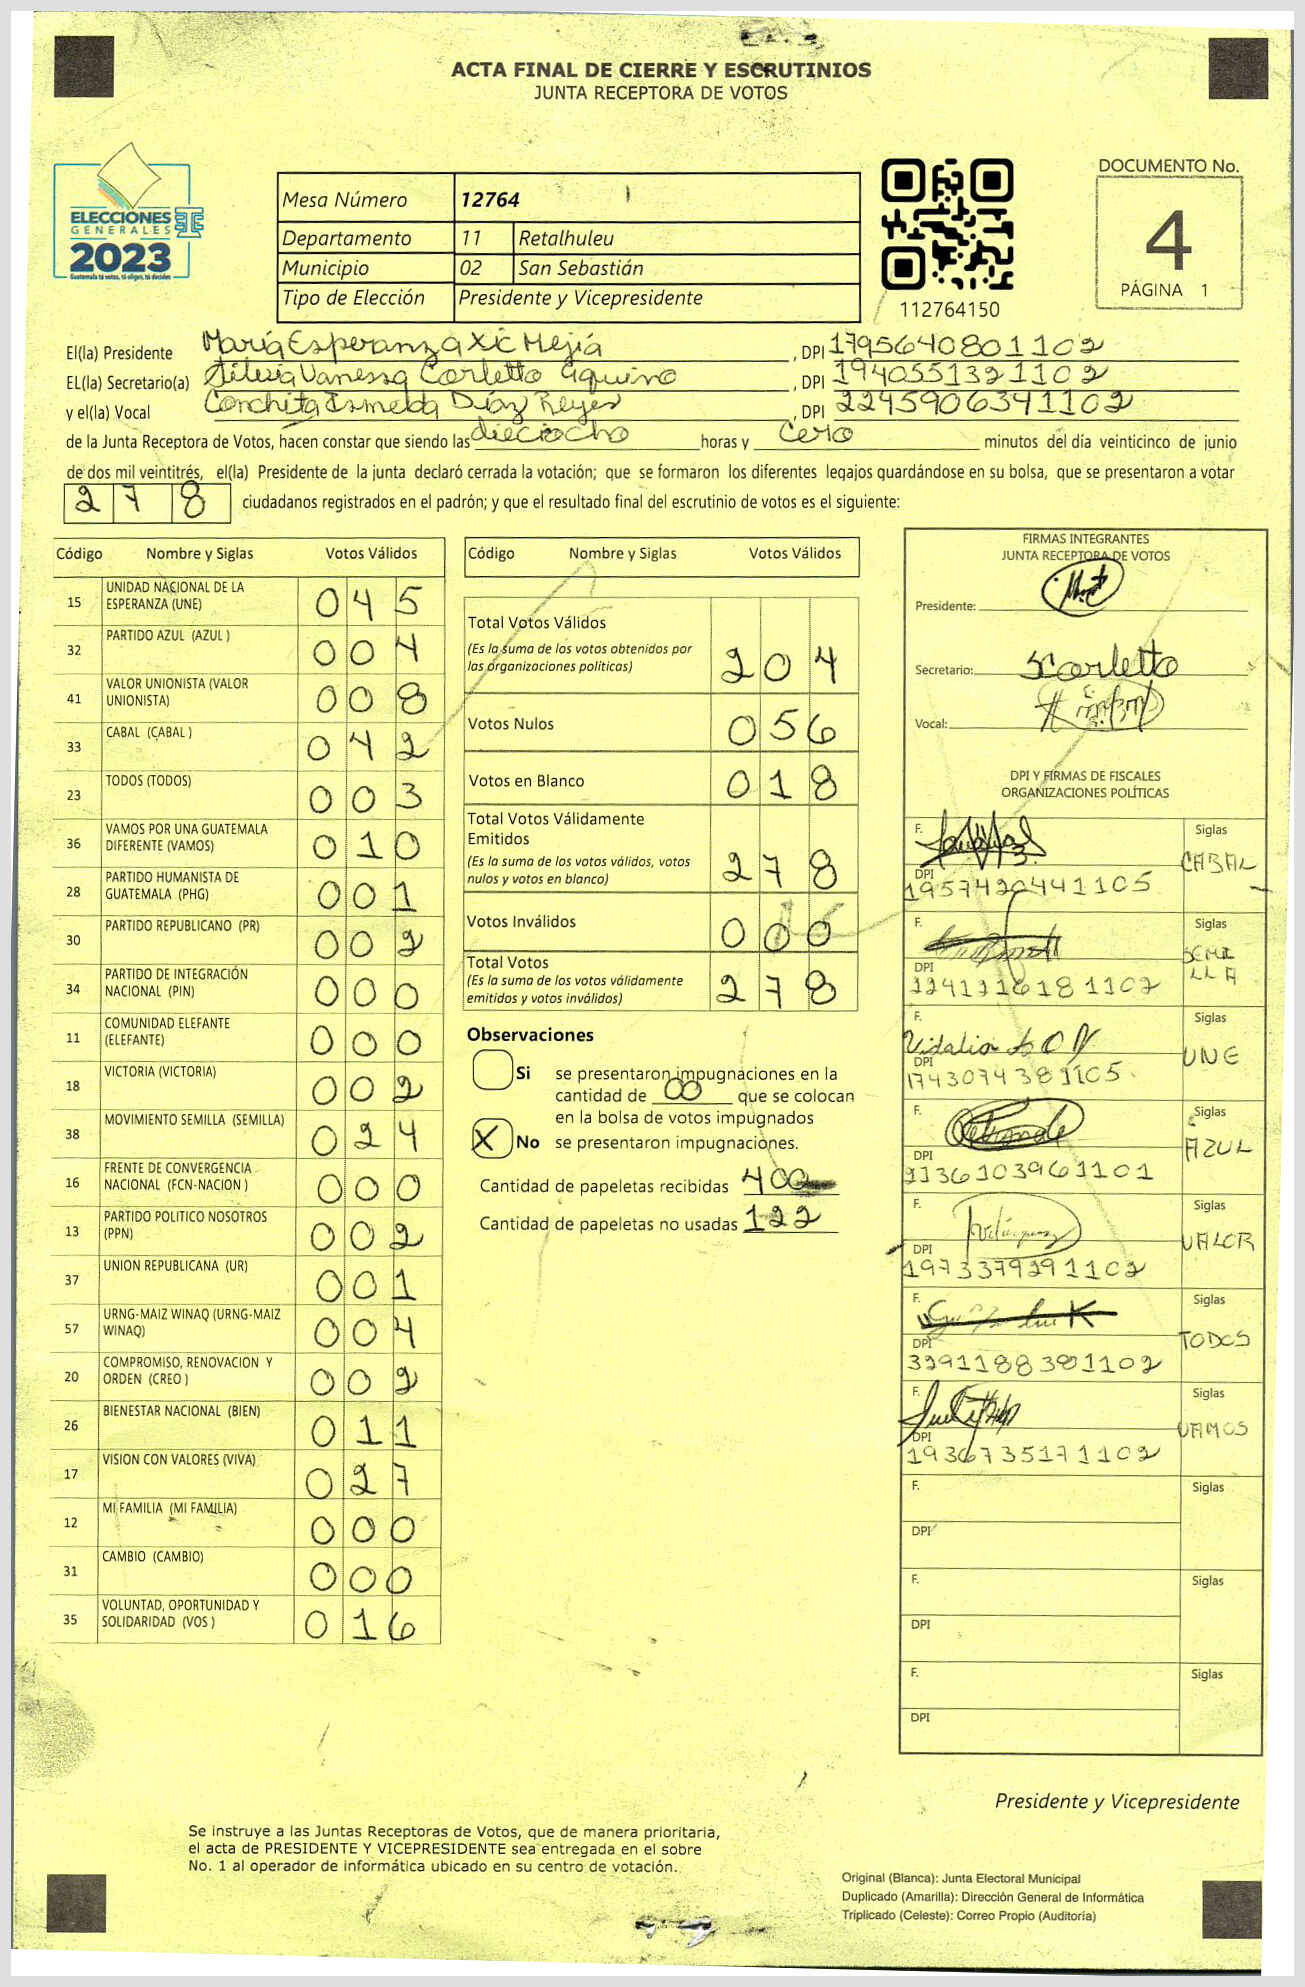 ACTA FINAL DE CIERRE Y ESCRUTINIOS
JUNTA RECEPTORA DE VOTOS
ELECCIONES
GENERALES
2023
Guatemala tú votas, tú eliges, tú decides
Mesa Número 12764
Departamento 11 Retalhuleu
Municipio 02 San Sebastián
Tipo de Elección Presidente y Vicepresidente
112764150
DOCUMENTO No.
4
PÁGINA 1
El(la) Presidente María Esperanza Xic Mejía , DPI 1795640801102
EL(la) Secretario(a) Vanessa Carletto Aquino , DPI 1940551321102
y el(la) Vocal Conchita Ismelda Díaz Reyes , DPI 2245906341102
de la Junta Receptora de Votos, hacen constar que siendo las dieciocho horas y cero minutos del día veinticinco de junio
de dos mil veintitrés, el(la) Presidente de la junta declaró cerrada la votación; que se formaron los diferentes legajos guardándose en su bolsa, que se presentaron a votar
278 ciudadanos registrados en el padrón; y que el resultado final del escrutinio de votos es el siguiente:
Código Nombre y Siglas Votos Válidos
15 UNIDAD NACIONAL DE LA ESPERANZA (UNE) 045
32 PARTIDO AZUL (AZUL ) 004
41 VALOR UNIONISTA (VALOR UNIONISTA) 008
33 CABAL (CABAL ) 042
23 TODOS (TODOS) 003
36 VAMOS POR UNA GUATEMALA DIFERENTE (VAMOS) 010
28 PARTIDO HUMANISTA DE GUATEMALA (PHG) 001
30 PARTIDO REPUBLICANO (PR) 002
34 PARTIDO DE INTEGRACIÓN NACIONAL (PIN) 000
11 COMUNIDAD ELEFANTE (ELEFANTE) 000
18 VICTORIA (VICTORIA) 002
38 MOVIMIENTO SEMILLA (SEMILLA) 024
16 FRENTE DE CONVERGENCIA NACIONAL (FCN-NACION ) 000
13 PARTIDO POLITICO NOSOTROS (PPN) 002
37 UNION REPUBLICANA (UR) 001
57 URNG-MAIZ WINAQ (URNG-MAIZ WINAQ) 004
20 COMPROMISO, RENOVACION Y ORDEN (CREO ) 002
26 BIENESTAR NACIONAL (BIEN) 011
17 VISION CON VALORES (VIVA) 027
12 MI FAMILIA (MI FAMILIA) 000
31 CAMBIO (CAMBIO) 000
35 VOLUNTAD, OPORTUNIDAD Y SOLIDARIDAD (VOS ) 016
Código Nombre y Siglas Votos Válidos
Total Votos Válidos 204
(Es la suma de los votos obtenidos por
las organizaciones políticas)
Votos Nulos 056
Votos en Blanco 018
Total Votos Válidamente
Emitidos
(Es la suma de los votos válidos, votos
nulos y votos en blanco) 278
Votos Inválidos 000
Total Votos
(Es la suma de los votos válidamente
emitidos y votos inválidos) 278
Observaciones
Si se presentaron impugnaciones en la
cantidad de 00 que se colocan
en la bolsa de votos impugnados
X No se presentaron impugnaciones.
Cantidad de papeletas recibidas 400
Cantidad de papeletas no usadas 122
FIRMAS INTEGRANTES
JUNTA RECEPTORA DE VOTOS
Presidente:
Secretario: Scarletto
Vocal:
DPI Y FIRMAS DE FISCALES
ORGANIZACIONES POLÍTICAS
F. Siglas CABAL
DPI 1957420441105
F. Siglas SEMILLA
DPI 2241216181102
F. Siglas UNE
DPI 1743074381105
F. Siglas AZUL
DPI 9136103961101
F. Siglas VALOR
DPI 1973379291102
F. Siglas TODOS
DPI 3291188381102
F. Siglas VAMOS
DPI 1936735171102
F. Siglas
DPI
F. Siglas
DPI
F. Siglas
DPI
Presidente y Vicepresidente
Se instruye a las Juntas Receptoras de Votos, que de manera prioritaria,
el acta de PRESIDENTE Y VICEPRESIDENTE sea entregada en el sobre
No. 1 al operador de informática ubicado en su centro de votación.
Original (Blanca): Junta Electoral Municipal
Duplicado (Amarilla): Dirección General de Informática
Triplicado (Celeste): Correo Propio (Auditoría)